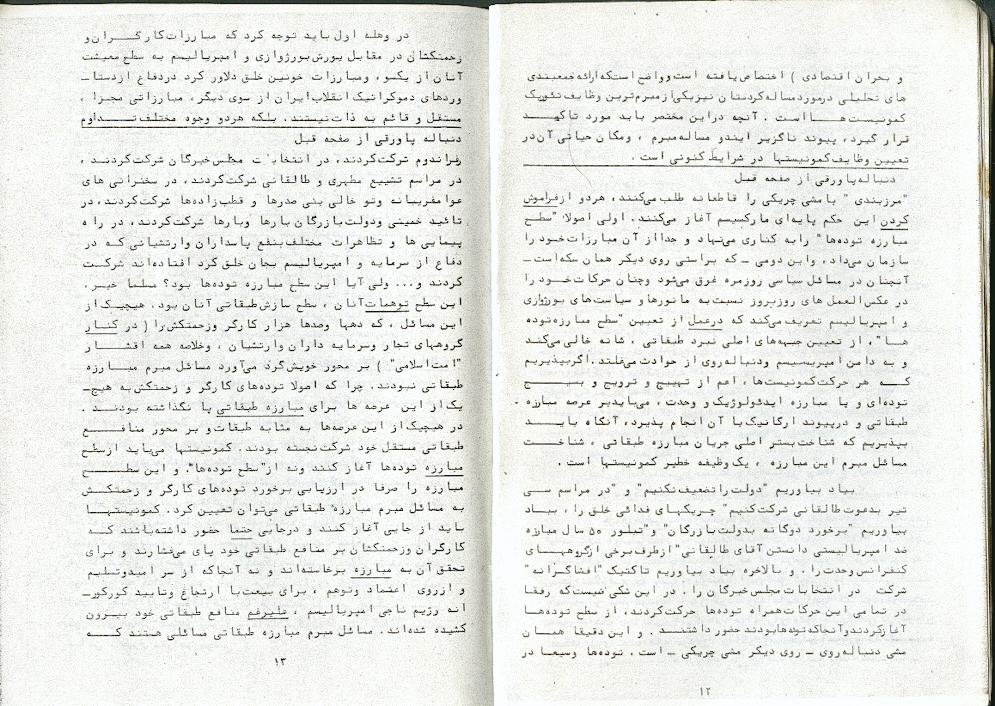 و بحران اقتصادی ) اختصاص یافته است و واضح استکه ارائه جمعبندی
های تحلیلی درمورد مساله کردستان نیز یکی از مبرم ترین وظایف تئوریک
کمونیست هاست . آنچه دراین مختصر باید مورد تاکید
قرار گیرد، پیوند ناگزیر ایندو مساله مبرم ، ومکان حیاتی آن در
تعیین وظایف کمونیستها در شرایط کنونی است .
دنباله پاورقی از صفحه قبل
"مرزبندی " با مشی چریکی را قاطعانه طلب میکنند، هردو از فراموش
کردن این حکم پایه‌ای مارکسیسم آغاز میکنند. اولی اصولا "سطح
مبارزه توده‌ها" را به کناری می‌نهاد و جدا از آن مبارزات خود را
سازمان میداد، و این دومی ــ که براستی روی دیگر همان سکه است ــ
آنچنان در مسائل سیاسی روزمره غرق میشود وچنان حرکات خود را
در عکس العمل های روزبروز نسبت به مانورها و سیاست های بورژوازی
و امپریالیسم تعریف میکند که درعمل از تعیین "سطح مبارزه توده
ها"، از تعیین جبهه‌های اصلی نبرد طبقاتی ، شانه خالی میکند
و به دامن امپریسیسم ودنباله روی از حوادث میغلتد. اگر بپذیریم
که هر حرکت کمونیست ها، اعم از تهییج و ترویج و بسیج
توده‌ای و یا مبارزه ایدئولوژیک و وحدت ، می‌باید بر عرصه مبارزه
طبقاتی و درپیوند ارگانیک با آن انجام پذیرد، آنگاه باید
بپذیریم که شناخت بستر اصلی جریان مبارزه طبقاتی ، شناخت
مسائل مبرم این مبارزه ، یک وظیفه خطیر کمونیستها است .
بیاد بیاوریم "دولت را تضعیف نکنیم" و "در مراسم سی
تیر بدعوت طالقانی شرکت کنیم" چریکهای فدائی خلق را ، بیاد
بیاوریم "برخورد دوگانه بدولت بازرگان" و "تبلور ۵۰ سال مبارزه
ضد امپریالیستی دانستن آقای طالقانی" ازطرف برخی ازگروههای
کنفرانس وحدت را . و بالاخره بیاد بیاوریم تاکتیک "افشاگرانه"
شرکت در انتخابات مجلس خبرگان را . در این شکی نیست که رفقا
در تمامی این حرکات همراه توده‌ها حرکت کردند، از سطح توده‌ها
آغاز کردند و آنجا که توده‌ها بودند حضور داشتند . و این دقیقا همان
مشی دنباله روی ــ روی دیگر مشی چریکی ــ است . توده‌ها وسیعا در
۱۲
در وهله اول باید توجه کرد که مبارزات کارگران و
زحمتکشان در مقابل یورش بورژوازی و امپریالیسم به سطح معیشت
آنان از یکسو، ومبارزات خونین خلق دلاور کرد دردفاع ازدستا-
وردهای دموکراتیک انقلاب ایران از سوی دیگر، مبارزاتی مجزا ،
مستقل و قائم به ذات نیستند. بلکه هردو وجوه مختلف تداوم
دنباله پاورقی از صفحه قبل
رفراندوم شرکت کردند، در انتخابات مجلس خبرگان شرکت کردند ،
در مراسم تشییع مطهری و طالقانی شرکت کردند، در سخنرانی های
عوامفریبانه وتو خالی بنی صدرها و قطب زاده‌ها شرکت کردند، در
تائید خمینی ودولت بازرگان بارها وبارها شرکت کردند، در راه
پیمایی ها و تظاهرات مختلف بنفع پاسداران وارتشیانی که در
دفاع از سرمایه و امپریالیسم بجان خلق کرد افتاده‌اند شرکت
کردند و... ولی آیا این سطح مبارزه توده‌ها بود؟ مسلما خیر.
این سطح توهمات آنان ، سطح سازش طبقاتی آنان بود. هیچیک از
این مسائل ، که دهها وصدها هزار کارگر وزحمتکش را ( در کنار
گروههای تجار وسرمایه داران وارتشیان ، وخلاصه همه اقشار
"امت اسلامی" ) بر محور خویش گرد می‌آورد مسائل مبرم مبارزه
طبقاتی نبودند. چرا که اصولا توده‌های کارگر و زحمتکش به هیچ-
یک از این عرصه ها برای مبارزه طبقاتی پا نگذاشته بودند .
در هیچیک از این عرصه‌ها به مثابه طبقات و بر محور منافع
طبقاتی مستقل خود شرکت نجسته بودند. کمونیستها می‌باید ازسطح
مبارزه توده‌ها آغاز کنند ونه از "سطح توده‌ها". و این سطح
مبارزه را صرفا در ارزیابی برخورد توده‌های کارگر و زحمتکش
به مسائل مبرم مبارزه طبقاتی میتوان تعیین کرد. کمونیستها
باید از جایی آغاز کنند و درجایی حتما حضور داشته باشند که
کارگران وزحمتکشان بر منافع طبقاتی خود پای می‌فشارند و برای
تحقق آن به مبارزه برخاسته‌اند و نه آنجا که از سر امید وتسلیم
و ازروی اعتماد وتوهم ، برای بیعت با ارتجاع وتایید کورکور-
انه رژیم ناجی امپریالیسم ، علیرغم منافع طبقاتی خود بیرون
کشیده شده‌اند. مسائل مبرم مبارزه طبقاتی مسائلی هستند که
۱۳